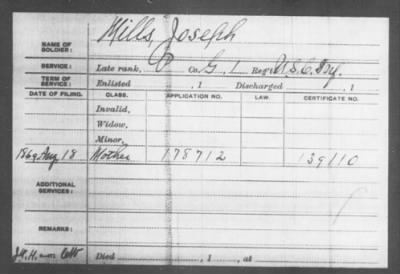 NAME OF SOLDIER: Mills, Joseph
SERVICE: Late rank, Co. G, 1 Reg't U.S.C. Inf.
TERM OF SERVICE: Enlisted , 1 Discharged , 1
DATE OF FILING. CLASS. APPLICATION NO. LAW. CERTIFICATE NO.
Invalid,
Widow,
Minor,
1869 Aug 18 Mother 178712 139110
ADDITIONAL SERVICES:
REMARKS:
Died , 1 , at